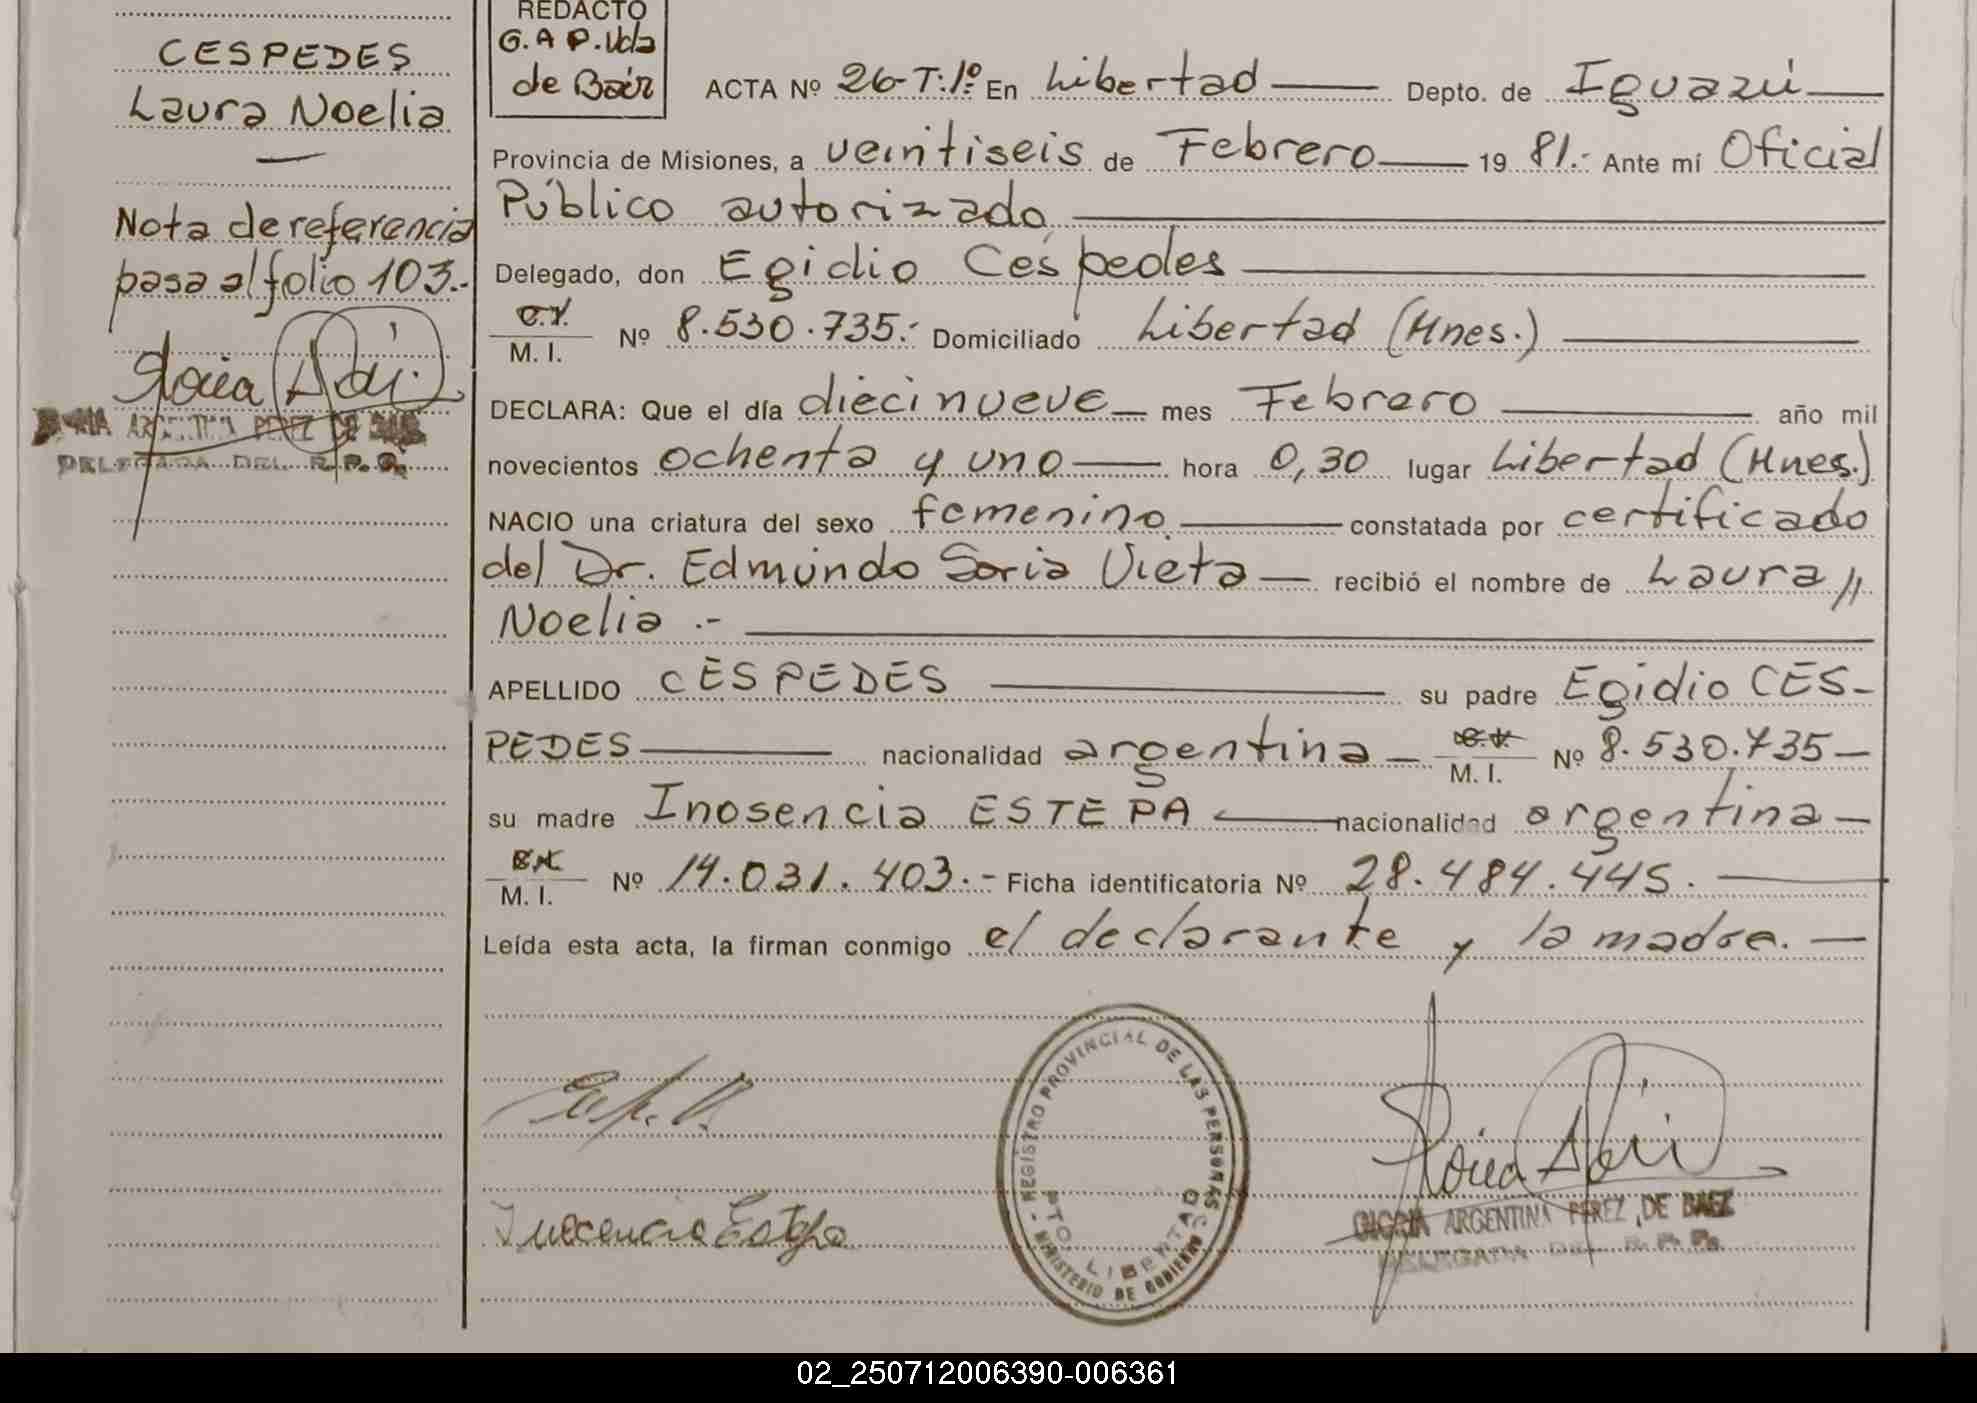 CESPEDES
Laura Noelia
Nota de referencia
pasa al folio 103.-
ARGENTINA PEREZ DE BAEZ
DELEGADA DEL R.P.P.
REDACTO
G.A P. Vda
de Baez
ACTA Nº 26-T:1º En Libertad Depto. de Iguazú
Provincia de Misiones, a veintiseis de Febrero 19 81.- Ante mí Oficial
Público autorizado
Delegado, don Egidio Céspedes
C.I. M. I. Nº 8.530.735.- Domiciliado Libertad (Mnes.)
DECLARA: Que el día diecinueve mes Febrero año mil
novecientos ochenta y uno hora 0,30 lugar Libertad (Mnes.)
NACIO una criatura del sexo femenino constatada por certificado
del Dr. Edmundo Soria Vieta recibió el nombre de Laura //
Noelia .-
APELLIDO CESPEDES su padre Egidio CES-
PEDES nacionalidad argentina M. I. Nº 8.530.735
su madre Inosencia ESTEPA nacionalidad argentina
M. I. Nº 14.031.403.- Ficha identificatoria Nº 28.484.445.
Leída esta acta, la firman conmigo el declarante y la madre.
REGISTRO PROVINCIAL DE LAS PERSONAS
MINISTERIO DE GOBIERNO
PTO. LIBERTAD
Inocencia Estepa
GLORIA ARGENTINA PEREZ DE BAEZ
DELEGADA DEL R.P.P.
02_250712006390-006361